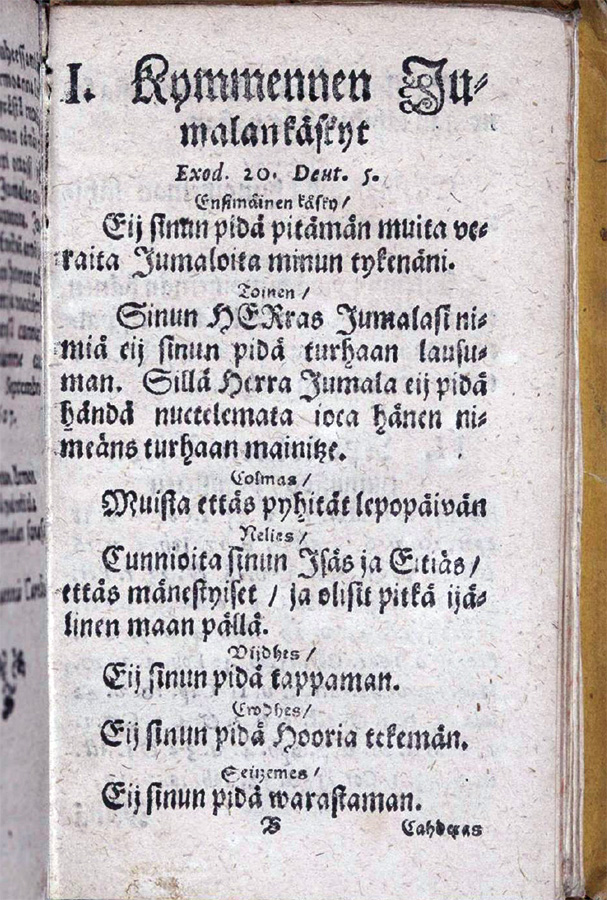 I. Kymmennen Ju⸗
malankäskyt
Exod. 20. Deut. 5.
Ensimäinen käsky /
Eij sinun pidä pitämän muita ve⸗
raita Jumaloita minun tykenäni.
Toinen /
Sinun HERras Jumalasi ni⸗
miä eij sinun pidä turhaan lausu⸗
man. Sillä Herra Jumala eij pidä
händä nuctelemata joca hänen ni⸗
meäns turhaan mainitze.
Colmas /
Muista ettäs pyhität lepopäivän
Neljes /
Cunnioita sinun Isäs ja Eitiäs /
ettäs mänestyiset / ja olisit pitkä ijä⸗
linen maan pällä.
Vijdhes /
Eij sinun pidä tappaman.
Cvdhes /
Eij sinun pidä Hooria tekemän.
Seitzemes /
Eij sinun pidä warastaman.
B
Cahdexas